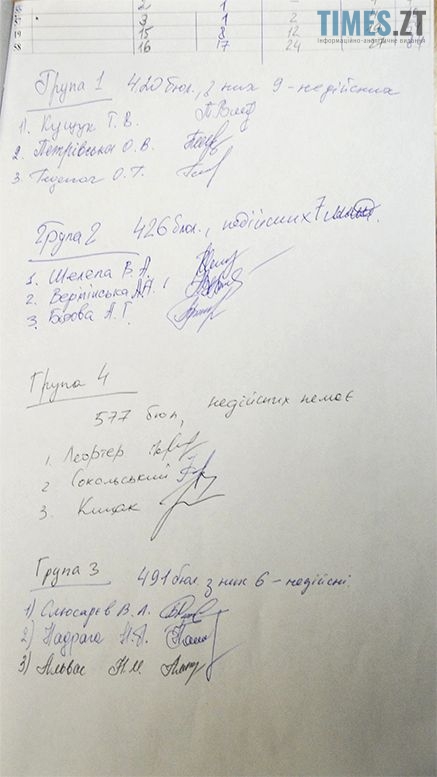 2 1
3 1 2
15 8 12
16 17 24
TIMES.ZT
інформаційно-аналітичне видання
Група 1 420 бюл., з них 9 - недійсних
1). Кущук Т. В.
2. Петрівська О. В.
3. О. Т.
Група 2 426 бюл., недійсних 7
1. Шелепа В. А.
2. Вербинська
3. Бідова А. Г.
Група 4
577 бюл, недійсних немає
1. Лєорчер
2 Сокольський
3. Кищак
Група 3 491 бюл. з них 6 - недійсні
1) Слюсарєв В. Л.
2) Надрага Н. Л.
3) Альвас Н. М.